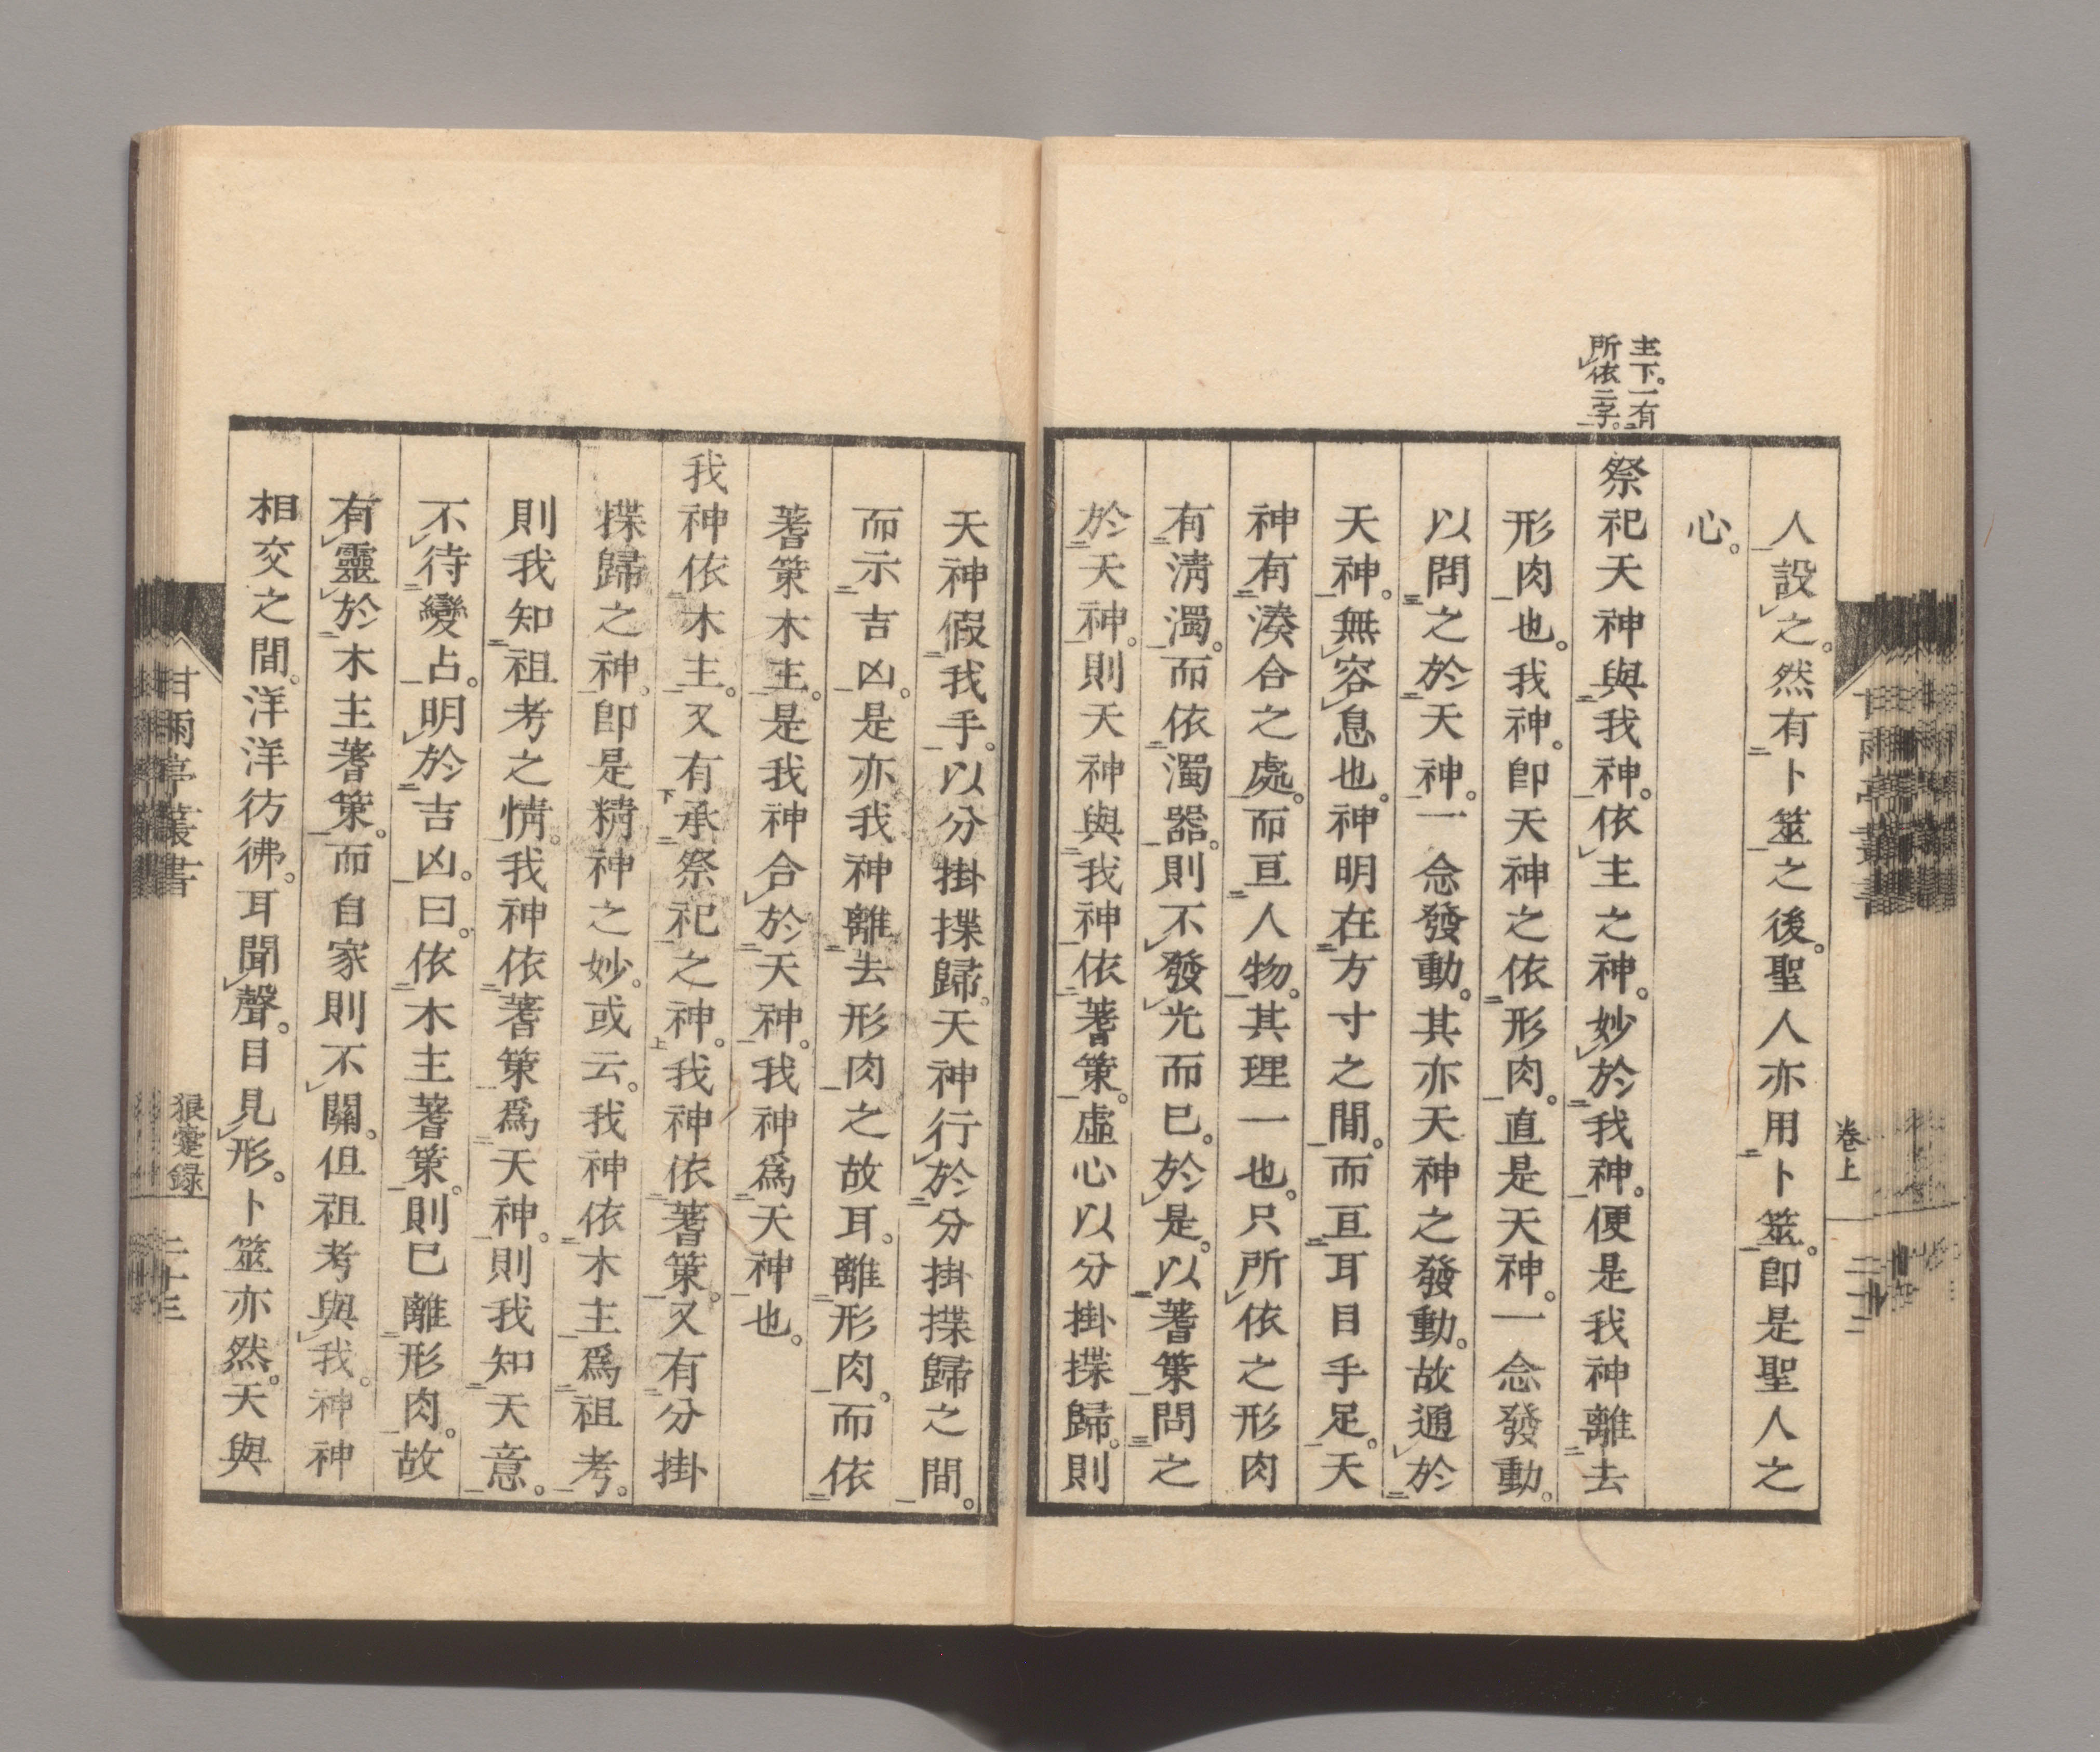 主下。一有
所依二字。
人設之。然有卜筮之後。聖人亦用卜筮。卽是聖人之
心。
祭祀天神與我神。依主之神。妙於我神。便是我神離去
形肉也。我神。卽天神之依形肉。直是天神。一念發動。
以問之於天神。一念發動。其亦天神之發動。故通於
天神。無容息也。神明在方寸之間。而亘耳目手足。天
神有湊合之處。而亘人物。其理一也。只所依之形肉
有淸濁。而依濁器。則不發光而已。於是。以蓍策問之
於天神。則天神與我神依蓍策。虛心以分掛揲歸。則
卷上
二十二
天神假我手。以分掛揲歸。天神行於分掛揲歸之間。
而示吉凶。是亦我神離去形肉之故耳。離形肉。而依
蓍策木主。是我神合於天神。我神爲天神也。
我神依木主。又有承祭祀之神。我神依蓍策。又有分掛
揲歸之神。卽是精神之妙。或云。我神依木主爲祖考。
則我知祖考之情。我神依蓍策爲天神。則我知天意。
不待變占。明於吉凶。曰。依木主蓍策。則已離形肉。故
有靈於木主蓍策。而自家則不關。但祖考與我。神神
相交之間。洋洋彷彿。耳聞聲。目見形。卜筮亦然。天與
甘雨亭叢書
狼疐録
二十三